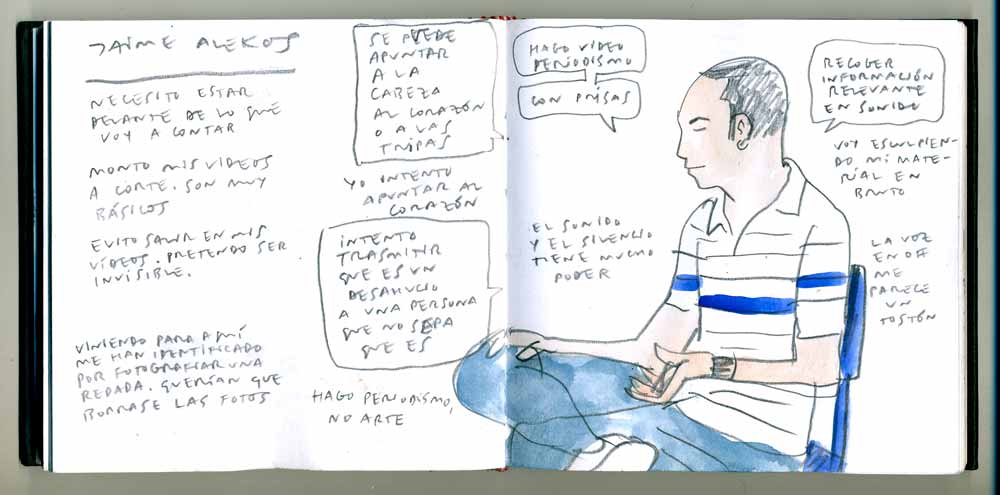 JAIME ALEKOS
NECESITO ESTAR
DELANTE DE LO QUE
VOY A CONTAR
MONTO MIS VÍDEOS
A CORTE. SON MUY
BÁSICOS
EVITO SALIR EN MIS
VÍDEOS. PRETENDO SER
INVISIBLE.
VINIENDO PARA AQUÍ
ME HAN IDENTIFICADO
POR FOTOGRAFIAR UNA
REDADA. QUERÍAN QUE
BORRASE LAS FOTOS
SE PUEDE
APUNTAR
A LA
CABEZA
AL CORAZÓN
O A LAS
TRIPAS
YO INTENTO
APUNTAR AL
CORAZÓN
INTENTO
TRASMITIR
QUE ES UN
DESAHUCIO
A UNA PERSONA
QUE NO SEPA
QUE ES
HAGO PERIODISMO,
NO ARTE
HAGO VÍDEO
PERIODISMO
CON PRISAS
EL SONIDO
Y EL SILENCIO
TIENE MUCHO
PODER
RECOGER
INFORMACIÓN
RELEVANTE
EN SONIDO
VOY ESCULPIEN-
DO MI MATE-
RIAL EN
BRUTO
LA VOZ
EN OFF
ME
PARECE
UN
TOSTÓN